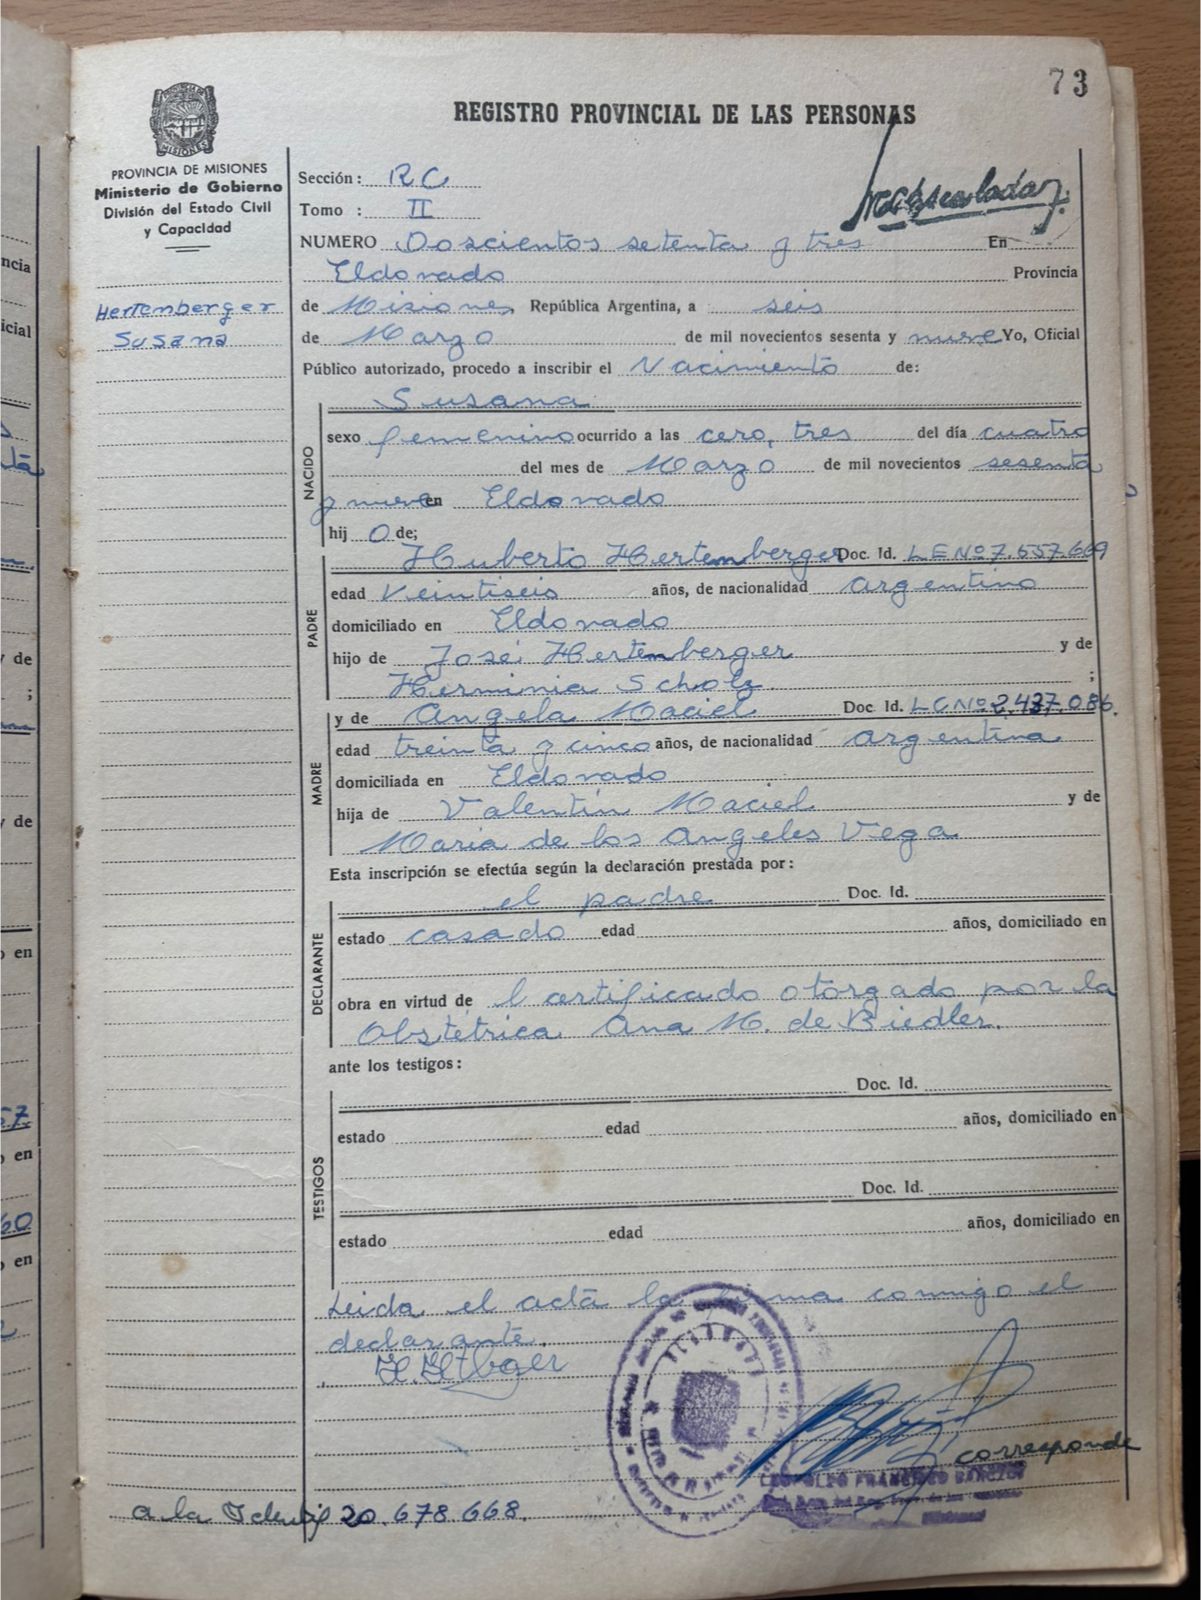 73
REGISTRO PROVINCIAL DE LAS PERSONAS
PROVINCIA DE MISIONES
Ministerio de Gobierno
División del Estado Civil
y Capacidad
Hertenberger
Susana
Sección: RC
Tomo: II
NUMERO Doscientos setenta y tres En
Eldorado Provincia
de Misiones República Argentina, a seis
de Marzo de mil novecientos sesenta y nueve Yo, Oficial
Público autorizado, procedo a inscribir el Nacimiento de:
Susana
NACIDO
sexo femenino ocurrido a las cero, tres del día cuatro
del mes de Marzo de mil novecientos sesenta
y nueve en Eldorado
hij o de;
PADRE
Huberto Hertenberger Doc. Id. LE Nº 7.557.669
edad Veintiseis años, de nacionalidad argentino
domiciliado en Eldorado
hijo de José Hertenberger y de
Herminia Scholz ;
MADRE
y de Angela Maciel Doc. Id. LC Nº 2.437.086.
edad treinta y cinco años, de nacionalidad argentina
domiciliada en Eldorado
hija de Valentín Maciel y de
Maria de los Angeles Vega
Esta inscripción se efectúa según la declaración prestada por:
DECLARANTE
el padre Doc. Id.
estado casado edad años, domiciliado en
obra en virtud de l certificado otorgado por la
Obstétrica Ana M. de Biedler.
ante los testigos:
TESTIGOS
Doc. Id.
estado edad años, domiciliado en
Doc. Id.
estado edad años, domiciliado en
Leida el acta la firma conmigo el
declarante.
corresponde
LEOPOLDO FRANCISCO
a la Identif 20.678.668.